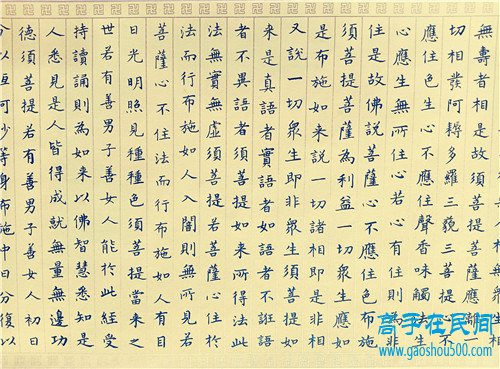 無壽者相是故須菩提菩薩應離一
切相發阿耨多羅三藐三菩提心不
應住色生心不應住聲香味觸法生
心應生無所住心若心有住則為非
住是故佛說菩薩心不應住色布施
須菩提菩薩為利益一切眾生應如
是布施如來說一切諸相即是非相
又說一切眾生即非眾生須菩提如
來是真語者實語者如語者不誑語
者不異語者須菩提如來所得法此
法無實無虛須菩提若菩薩心住於
法而行布施如人入闇則無所見若
菩薩心不住法而行布施如人有目
日光明照見種種色須菩提當來之
世若有善男子善女人能於此經受
持讀誦則為如來以佛智慧悉知是
人悉見是人皆得成就無量無邊功
德須菩提若有善男子善女人初日
等身布施中日分復以
高手在民间
www.gaoshou500.com